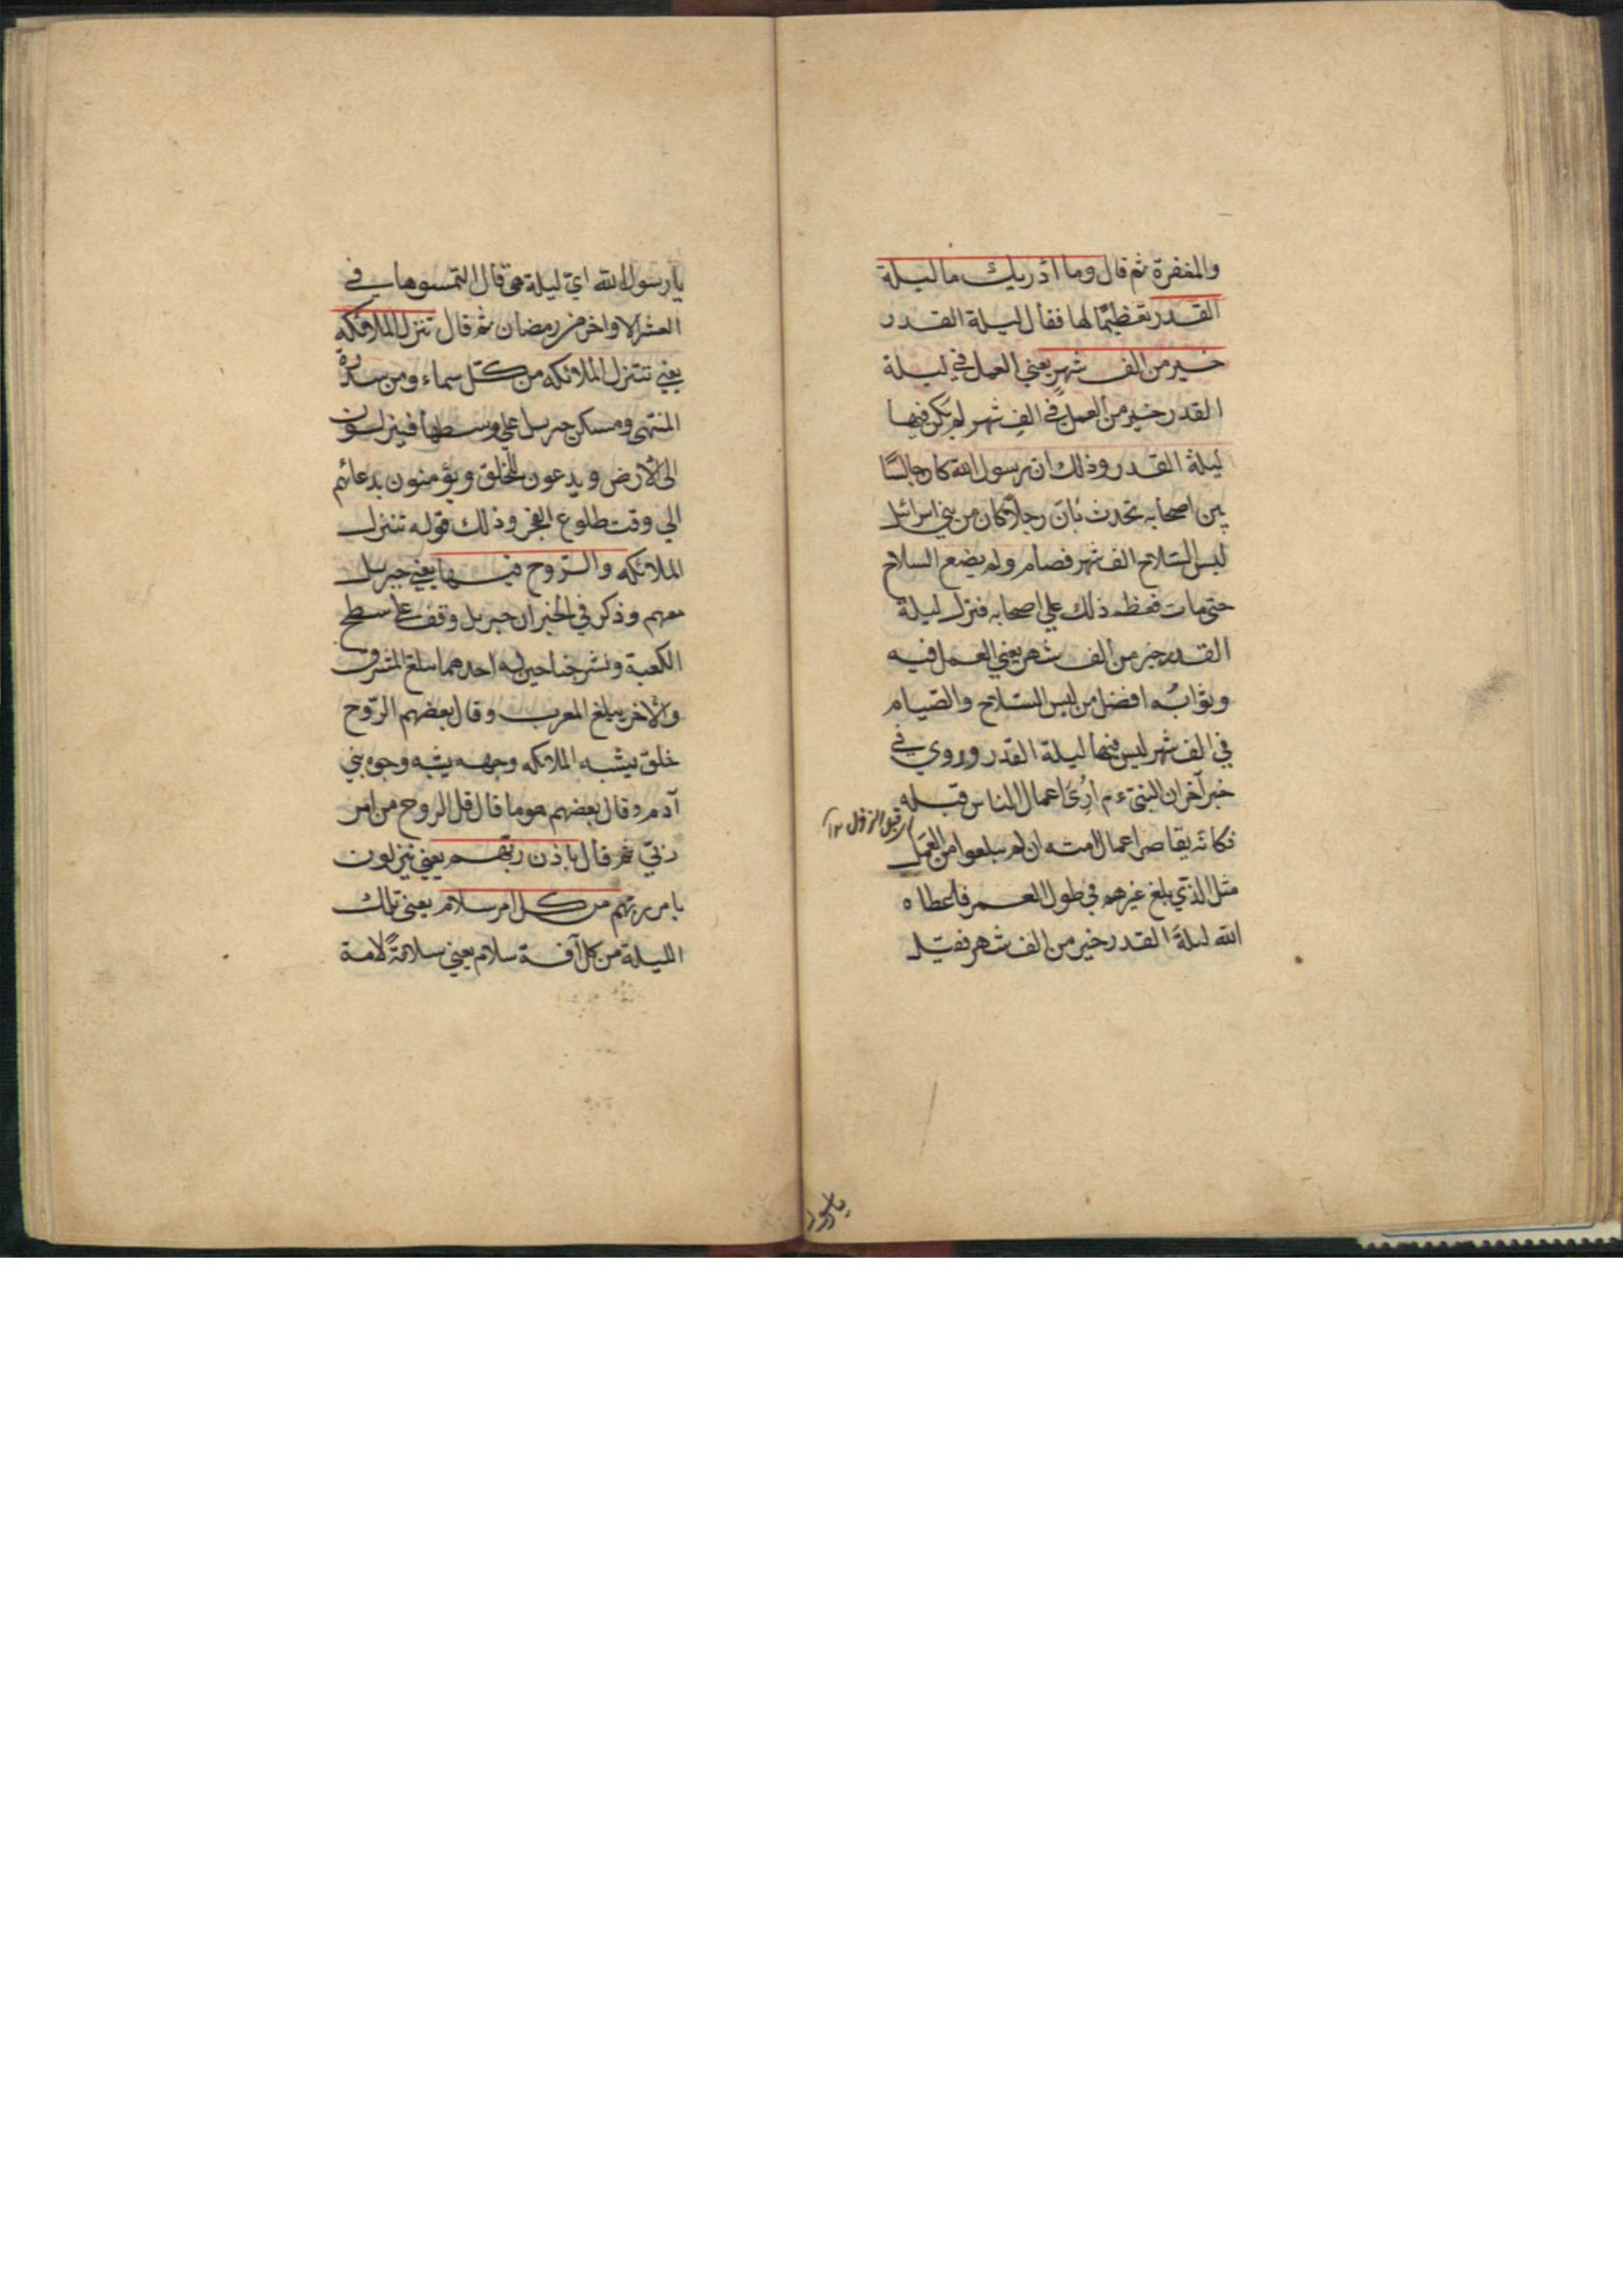 والمغفرة ثم قال وما ادريك ما ليلة
القدر تعظيمًا لها فقال ليلة القدر
خير من الف شهر يعني العمل في ليلة
القدر خير من العمل في الف شهر لم يكن فيها
ليلة القدر وذلك ان رسول الله كان جالسًا
بين اصحابه يحدث بان رجلًا كان من بني اسرائيل
لبس السّلاح الف شهر فصام ولم يضع السلاح
حتى مات فعظم ذلك علي اصحابه فنزل ليلة
القدر خير من الف شهر يعني العمل فيه
وثوابُه افضل من لبس السّلاح والصّيام
في الف شهر ليس فيها ليلة القدر وروي في
خبر آخر ان النبيّ ءم اُرِيَ اعمال الناس قبله
قبل النزول ١٢
فكانّه تقاصر اعمال امته ان لم يبلغوا من العمل
مثل الذي بلغ غيرهم في طول العمر فاعطاه
الله ليلة القدر خير من الف شهر فقيل
يا رسول الله ايّ ليلة هي قال التمسوها في
العشر الاواخر من رمضان ثم قال تنزل الملائكه
يعني تتنزل الملائكه من كلّ سماء ومن سدرة
المنتهى ومسكن جبريل علي وسطها فينزلون
الى الارض ويدعون للخلق ويؤمنون بدعائهم
الي وقت طلوع الفجر وذلك قوله تنزل
الملائكه والرّوح فيها يعني جبريل
معهم وذكر في الخبر ان جبريل وقف على سطح
الكعبة ونشر جناحين له احدهما يبلغ المشرق
والاخر يبلغ المغرب وقال بعضهم الرّوح
خلق يشبه الملائكه وجهه يشبه وجوه بني
آدم وقال بعضهم هو ما قال قل الروح من امر
ربّي ثم قال باذن ربّهم يعني ينزلون
بامر ربّهم من كل امر سلام يعني تلك
الليلة من كل آفة سلام يعني سلامةً لامة